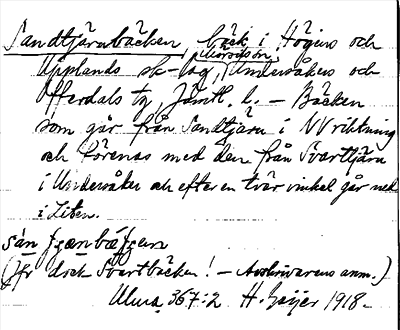 Sandtjärnbäcken, bäck i Högens och
Upplands sk-lag, Undersåkers och
Offerdals tg, Jämtl. l. – Bäcken
som går från Sandtjärn i NV riktning
och förenas med den från Svarttjärn
i Undersåker och efter en tvär vinkel går ned
i Liten.
(Jfr dock Svartbäcken! – Avskrivarens anm.)
Ulma 367:2 H. Geijer 1918.